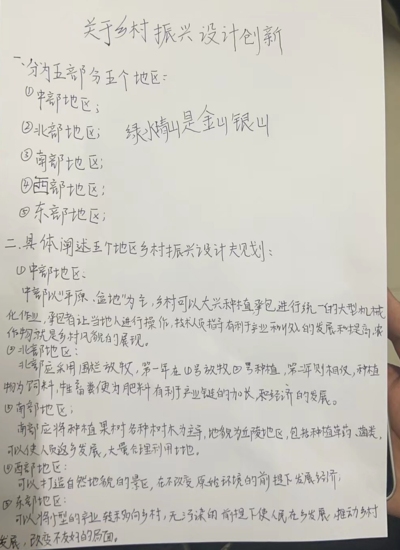 关于乡村振兴设计创新
一、分为五部分五个地区:
①中部地区;
②北部地区;
绿水青山是金山银山
③南部地区;
④西部地区;
⑤东部地区;
二、具体阐述五个地区乡村振兴设计大规划:
①中部地区:
中部以“平原、盆地”为主,乡村可以大兴种植,承包进行统一的大型机械
化作业,承包者让当地人进行操作,技术人员指导有利于产业和
的发展和提高,农
作物就是乡村风貌的展现。
②北部地区:
北部应采用围栏放牧,第一年在①号放牧②号种植,第二年则相反,种植
物为饲料,牲畜粪便为肥料有利于产业链的加长,和经济的发展。
③南部地区:
南部应将种植果树各种树木为主导,地貌为丘陵地区,包括种植草药、菌类,
可以使人员返乡发展,大量合理利用土地。
④西部地区:
可以打造自然地貌的景区,在不改变原始环境的前提下发展经济;
⑤东部地区:
可以将小型的产业转移向乡村,无污染的前提下使人民在乡发展,推动乡村
发展,改变不友好的局面。